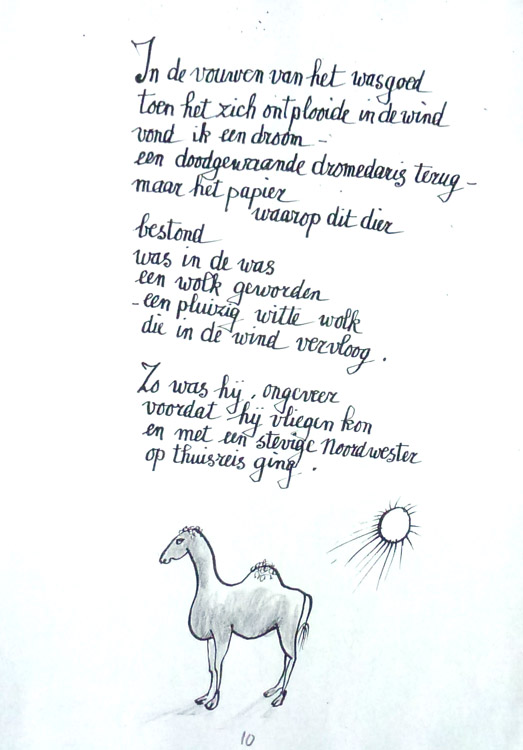 In de vouwen van het wasgoed
toen het zich ontplooide in de wind
vond ik een droom -
een doodgewaande dromedaris terug -
maar het papier
waarop dit dier
bestond
was in de was
een wolk geworden
- een pluizig witte wolk
die in de wind vervloog.
Zo was hij, ongeveer
voordat hij vliegen kon
en met een stevige Noordwester
op thuisreis ging.
10